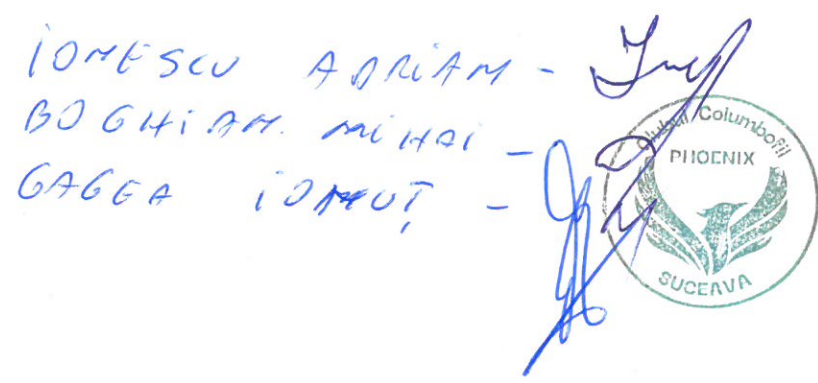 IONESCU ADRIAN -
BOGHIAN MIHAI -
GAGEA IONUȚ -
Clubul Columbofil
PHOENIX
SUCEAVA